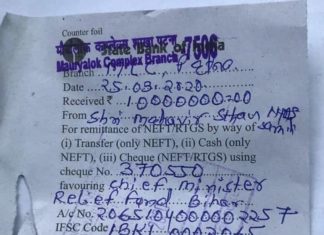 Counter foil
State Bank of India
7506
Mauryalok Complex Branch
Branch M.L.C., Patna
Date 25.03.2020
Received ₹ 10000000=00
From Shri Mahavir Sthan Nyas Samiti
For remittance of NEFT/RTGS by way of
(i) Transfer (only NEFT), (ii) Cash (only
NEFT), (iii) Cheque (NEFT/RTGS) using
cheque No. 370550
favouring Chief minister
Relief Fund Bihar
A/c No. 20651040000 2257
IFSC Code